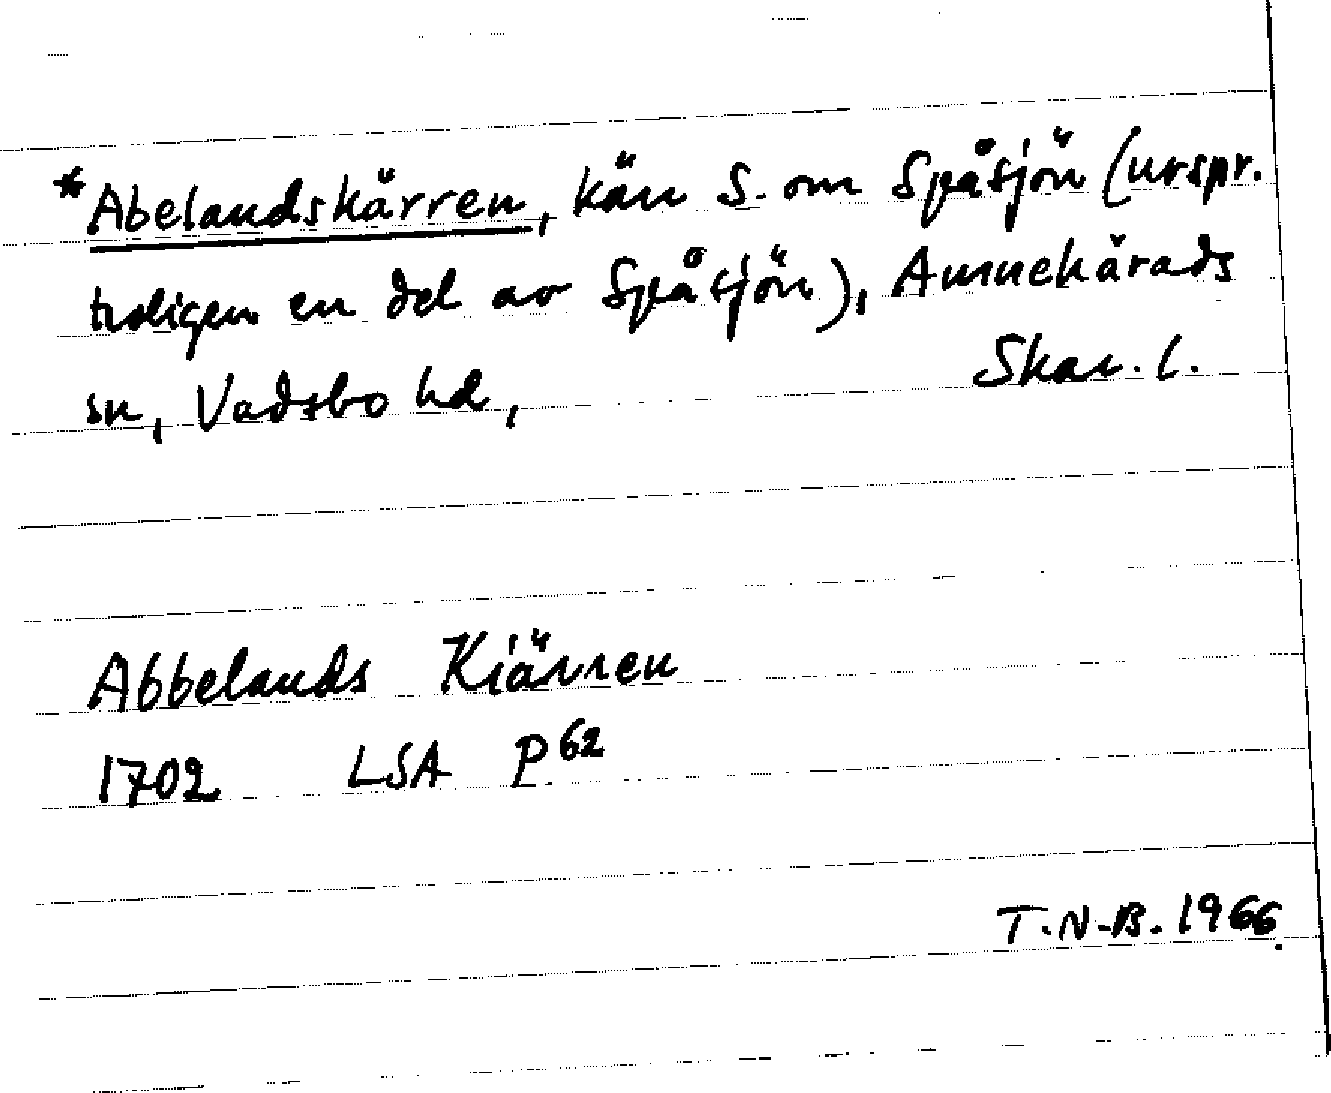 *Abelandskärren, kärr S. om Spåsjön (urspr.
troligen en del av Spåsjön), Amnehärads
sn, Vadsbo hd, Skar. l.
Abbelands Kiärren
1702 LSA P 62
T.N.B. 1966.